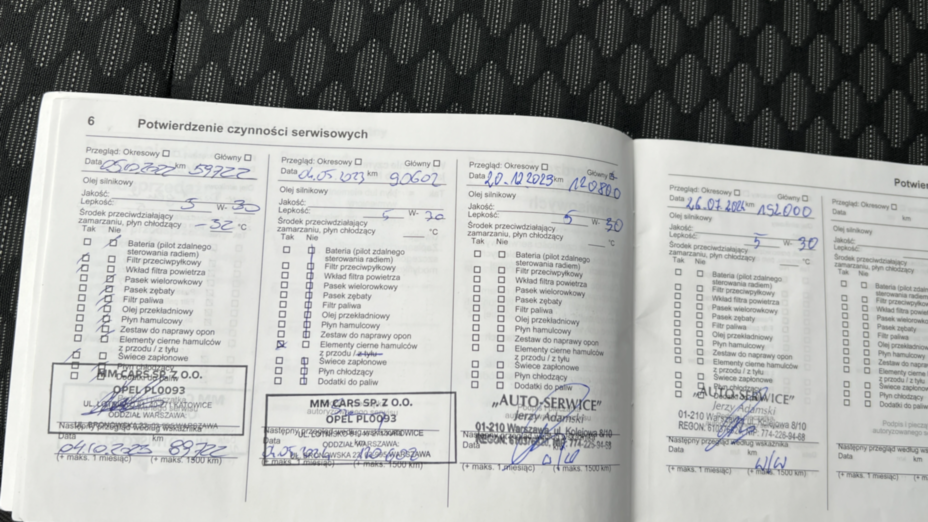 6 Potwierdzenie czynności serwisowych
Przegląd: Okresowy Główny
Data 05.10.2022 km 59722
Olej silnikowy
Jakość:
Lepkość: 5 W- 30
Środek przeciwdziałający
zamarzaniu, płyn chłodzący -32 °C
Tak Nie
Bateria (pilot zdalnego
sterowania radiem)
Filtr przeciwpyłkowy
Wkład filtra powietrza
Pasek wielorowkowy
Pasek zębaty
Filtr paliwa
Olej przekładniowy
Płyn hamulcowy
Zestaw do naprawy opon
Elementy cierne hamulców
z przodu / z tyłu
Świece zapłonowe
MM CARS SP. Z O.O.
OPEL PL0093
ODDZIAŁ WARSZAWA
Następny przegląd według wskaźnika
Data km
04.10.2023 89722
(+ maks. 1 miesiąc) (+ maks. 1500 km)
Przegląd: Okresowy Główny
Data 04.05.2023 km 90602
Olej silnikowy
Jakość:
Lepkość: 5 W-
Środek przeciwdziałający
zamarzaniu, płyn chłodzący °C
Tak Nie
Bateria (pilot zdalnego
sterowania radiem)
Filtr przeciwpyłkowy
Wkład filtra powietrza
Pasek wielorowkowy
Pasek zębaty
Filtr paliwa
Olej przekładniowy
Płyn hamulcowy
Zestaw do naprawy opon
Elementy cierne hamulców
z przodu / z tyłu
Świece zapłonowe
Płyn chłodzący
Dodatki do paliw
MM CARS SP. Z O.O.
OPEL PL0093
ODDZIAŁ WARSZAWA
Data km
(+ maks. 1 miesiąc) (+ maks. 1500 km)
Przegląd: Okresowy Główny
Data 20.12.2023 km 120800
Olej silnikowy
Jakość:
Lepkość: 5 W- 30
Środek przeciwdziałający
zamarzaniu, płyn chłodzący °C
Tak Nie
Bateria (pilot zdalnego
sterowania radiem)
Filtr przeciwpyłkowy
Wkład filtra powietrza
Pasek wielorowkowy
Pasek zębaty
Filtr paliwa
Olej przekładniowy
Płyn hamulcowy
Zestaw do naprawy opon
Elementy cierne hamulców
z przodu / z tyłu
Świece zapłonowe
Płyn chłodzący
Dodatki do paliw
„AUTO-SERWICE"
Jerzy Adamski
01-210 Warszawa, ul. Kolejowa 8/10
Data km
(+ maks. 1 miesiąc) (+ maks. 1500 km)
Przegląd: Okresowy Główny
Data 26.07.2024 km 152000
Olej silnikowy
Jakość:
Lepkość: 5 W- 30
Środek przeciwdziałający
zamarzaniu, płyn chłodzący °C
Tak Nie
Bateria (pilot zdalnego
sterowania radiem)
Filtr przeciwpyłkowy
Wkład filtra powietrza
Pasek wielorowkowy
Pasek zębaty
Filtr paliwa
Olej przekładniowy
Płyn hamulcowy
Zestaw do naprawy opon
Elementy cierne hamulców
z przodu / z tyłu
Świece zapłonowe
Płyn chłodzący
Dodatki do paliw
AUTO-SERWICE"
Jerzy Adamski
01-210 Warszawa, ul. Kolejowa 8/10
Następny przegląd według wskaźnika
Data km
W/W
(+ maks. 1 miesiąc) (+ maks. 1500 km)
Przegląd: Okresowy
Data km
Olej silnikowy
Jakość:
Lepkość:
Środek przeciwdziałający
zamarzaniu, płyn chłodzący
Tak Nie
Bateria (pilot zdalnego
sterowania radiem)
Filtr przeciwpyłkowy
Wkład filtra powietrza
Pasek wielorowkowy
Pasek zębaty
Filtr paliwa
Olej przekładniowy
Płyn hamulcowy
Zestaw do naprawy
Elementy cierne
z przodu / z tyłu
Świece zapłonowe
Płyn chłodzący
Dodatki do paliw
Następny przegląd według
Data km
(+ maks. 1 miesiąc)